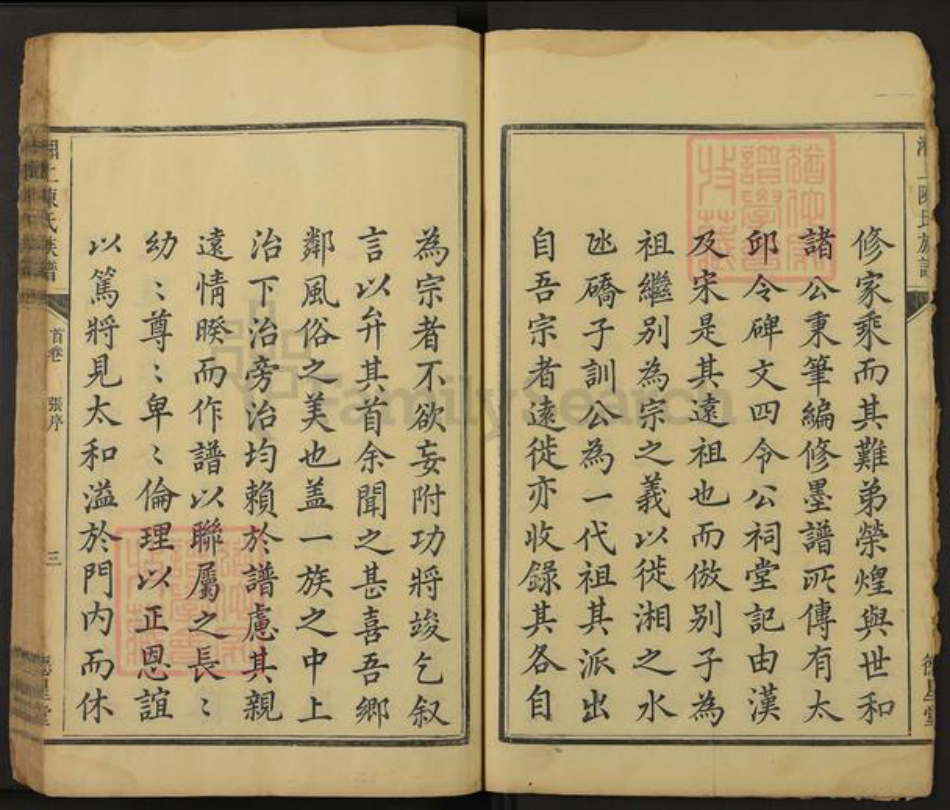 修家乘而其難弟榮煌與世和
諸公秉筆編修墨譜所傳有太
邱令碑文四令公祠堂記由漢
及宋是其遠祖也而倣別子為
祖繼別為宗之義以徙湘之水
氹礄子訓公為一代祖其派出
自吾宗者遠徙亦收錄其各自
為宗者不欲妄附功將竣乞叙
言以弁其首余聞之甚喜吾鄉
鄰風俗之美也盖一族之中上
治下治旁治均賴於譜慮其親
遠情暌而作譜以聯屬之長〻
幼〻尊〻卑〻倫理以正恩誼
以篤將見太和溢於門內而休
湘上陳氏族譜
首卷
張序
三
德星堂
湘上陳氏族譜
德星堂
FamilySearch